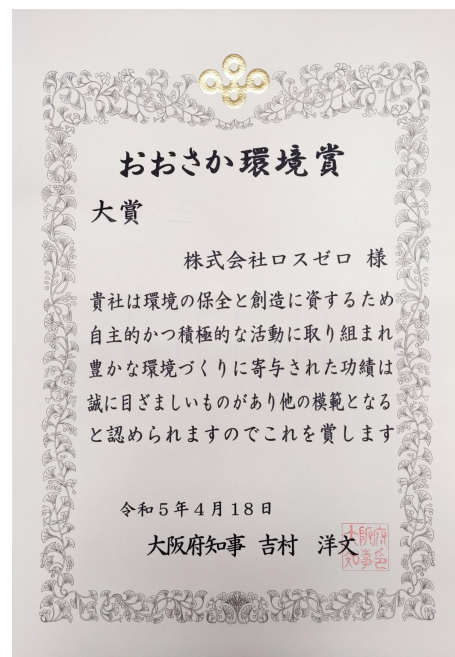 おおさか環境賞
大賞
株式会社ロスゼロ 様
貴社は環境の保全と創造に資するため
自主的かつ積極的な活動に取り組まれ
豊かな環境づくりに寄与された功績は
誠に目ざましいものがあり他の模範となる
と認められますのでこれを賞します
令和5年4月18日
大阪府知事 吉村 洋文
大阪府
知事之印